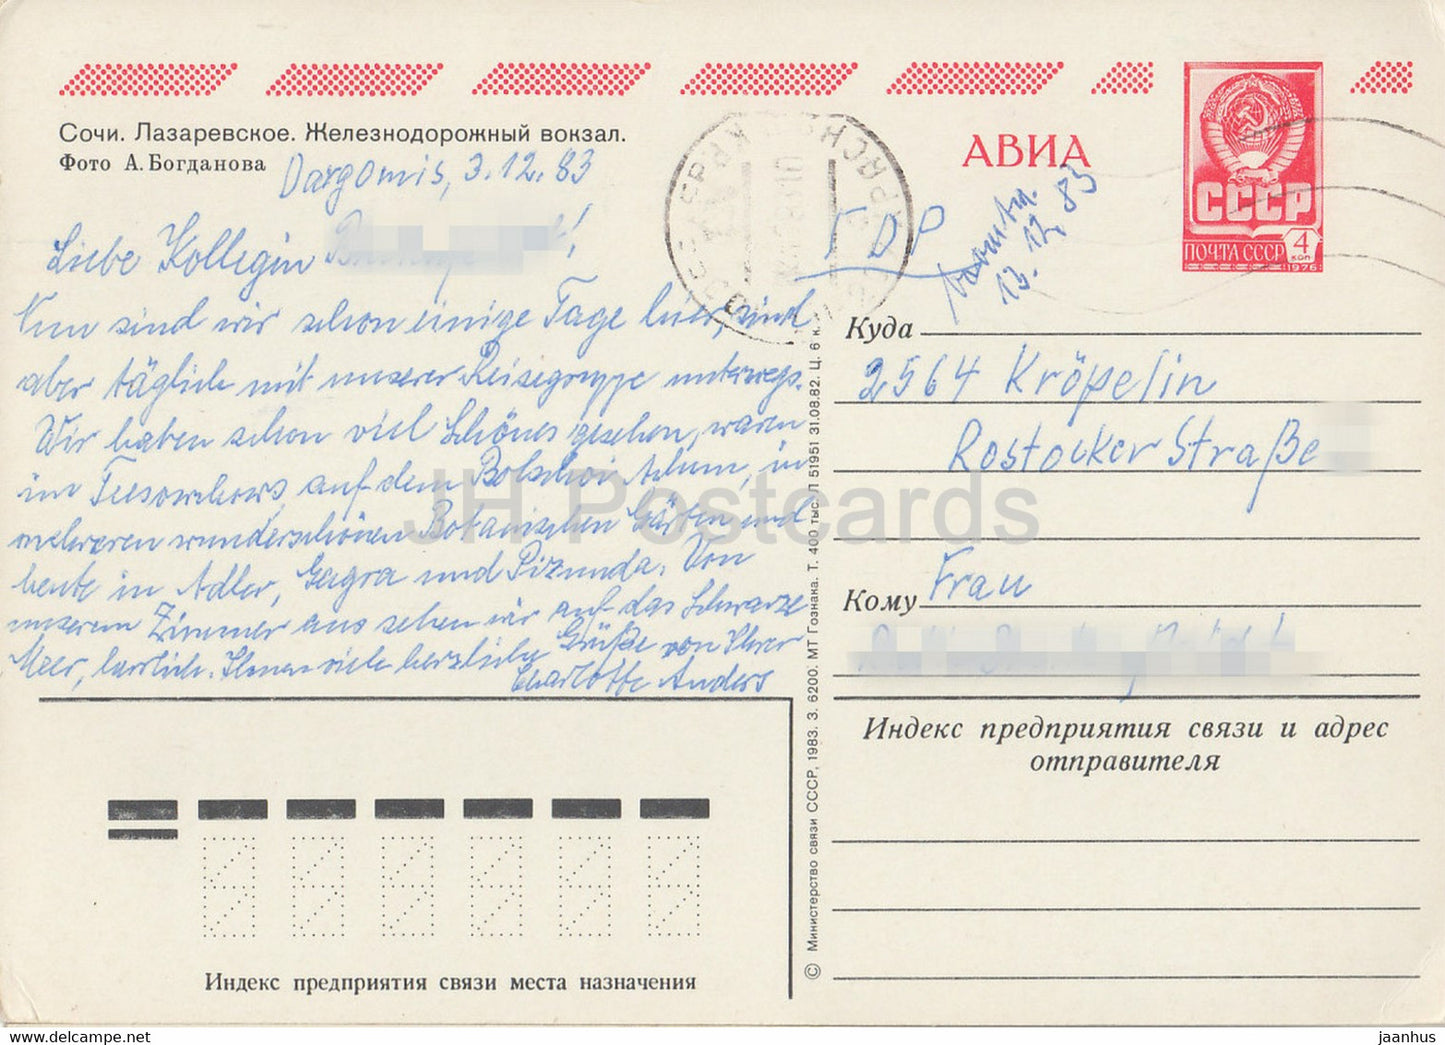 Сочи. Лазаревское. Железнодорожный вокзал.
Фото А. Богданова
Dargomis, 3.12.83
Liebe Kollegin
Nun sind wir schon einige Tage hier, sind
aber täglich mit unserer Reisegruppe unterwegs.
Wir haben schon viel Schönes gesehen, waren
im auf dem Bolschoi Achun, in
mehreren wunderschönen Botanischen Gärten und
heute in Adler, Gagra und Pizunda. Von
unserem Zimmer aus sehen wir auf das Schwarze
Meer, herrlich. Ihnen viele herzliche Grüße von Ihrer
Charlotte Anders
АВИА
13.12.83
СССР
ПОЧТА СССР 4 коп
1976
Куда
2564 Kröpelin
Rostocker Straße
Кому
Frau
Индекс предприятия связи и адрес
отправителя
Индекс предприятия связи места назначения
© Министерство связи СССР, 1983. З. 6200. МТ Гознака. Т. 400 тыс. Л 51951 31.08.82. Ц. 6 к.
JH Postcards
www.delcampe.net
jaanhus